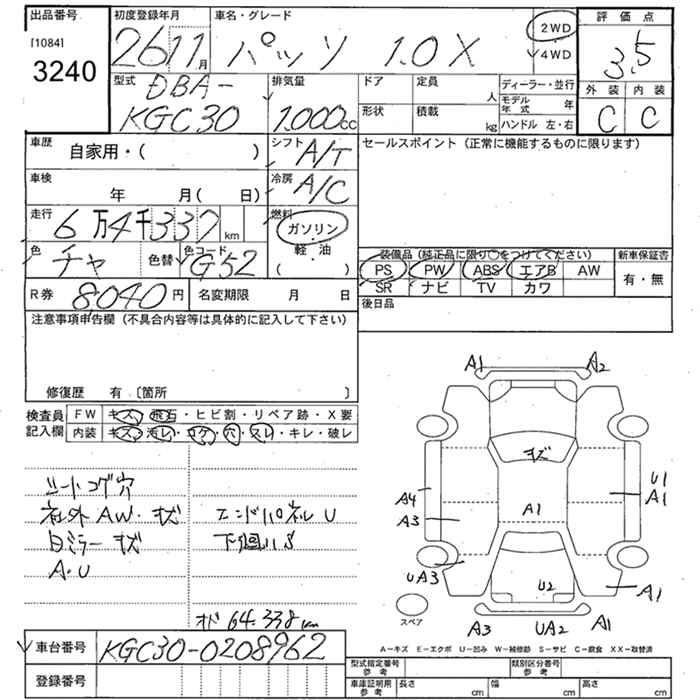 出品番号
[1084]
3240
初度登録年月
26 11月
車名・グレード
パッソ 1.0X
2WD
4WD
評価点
3.5
外装 内装
C C
型式
DBA-
KGC30
排気量
1.000cc
ドア
定員
人
形状
積載
kg
ディーラー・並行
モデル年式 年
ハンドル 左・右
車歴
自家用・( )
シフト
A/T
セールスポイント (正常に機能するものに限ります)
車検
年 月( 日)
冷房
A/C
走行
6万4千337km
燃料
ガソリン
軽・油
( )
色
チャ
色替
色コード
G52
装備品 (純正品に限り○をつけてください)
PS PW ABS エアB AW
SR ナビ TV カワ
新車保証書
有・無
R券
8040円
名変期限 月 日
後日品
注意事項申告欄 (不具合内容等は具体的に記入して下さい)
修復歴 有〔箇所 〕
検査員記入欄
FW キズ・飛石・ヒビ割・リペア跡・X要
内装 キズ・汚レ・コゲ・穴・スレ・キレ・破レ
シートコゲ穴
社外AW・キズ
エンドパネルU
ミラーキズ
A・U
64.338km
車台番号
KGC30-0208962
登録番号
A1
A2
キズ
U1
A1
A4
A3
A1
UA3
U2
A1
スペア
A3
UA2
A1
A-キズ E-エクボ U-凹み W-補修跡 S-サビ C-腐食 XX-取替済
型式指定番号 参考
類別区分番号 参考
車庫証明用 参考
長さ cm
幅 cm
高さ cm